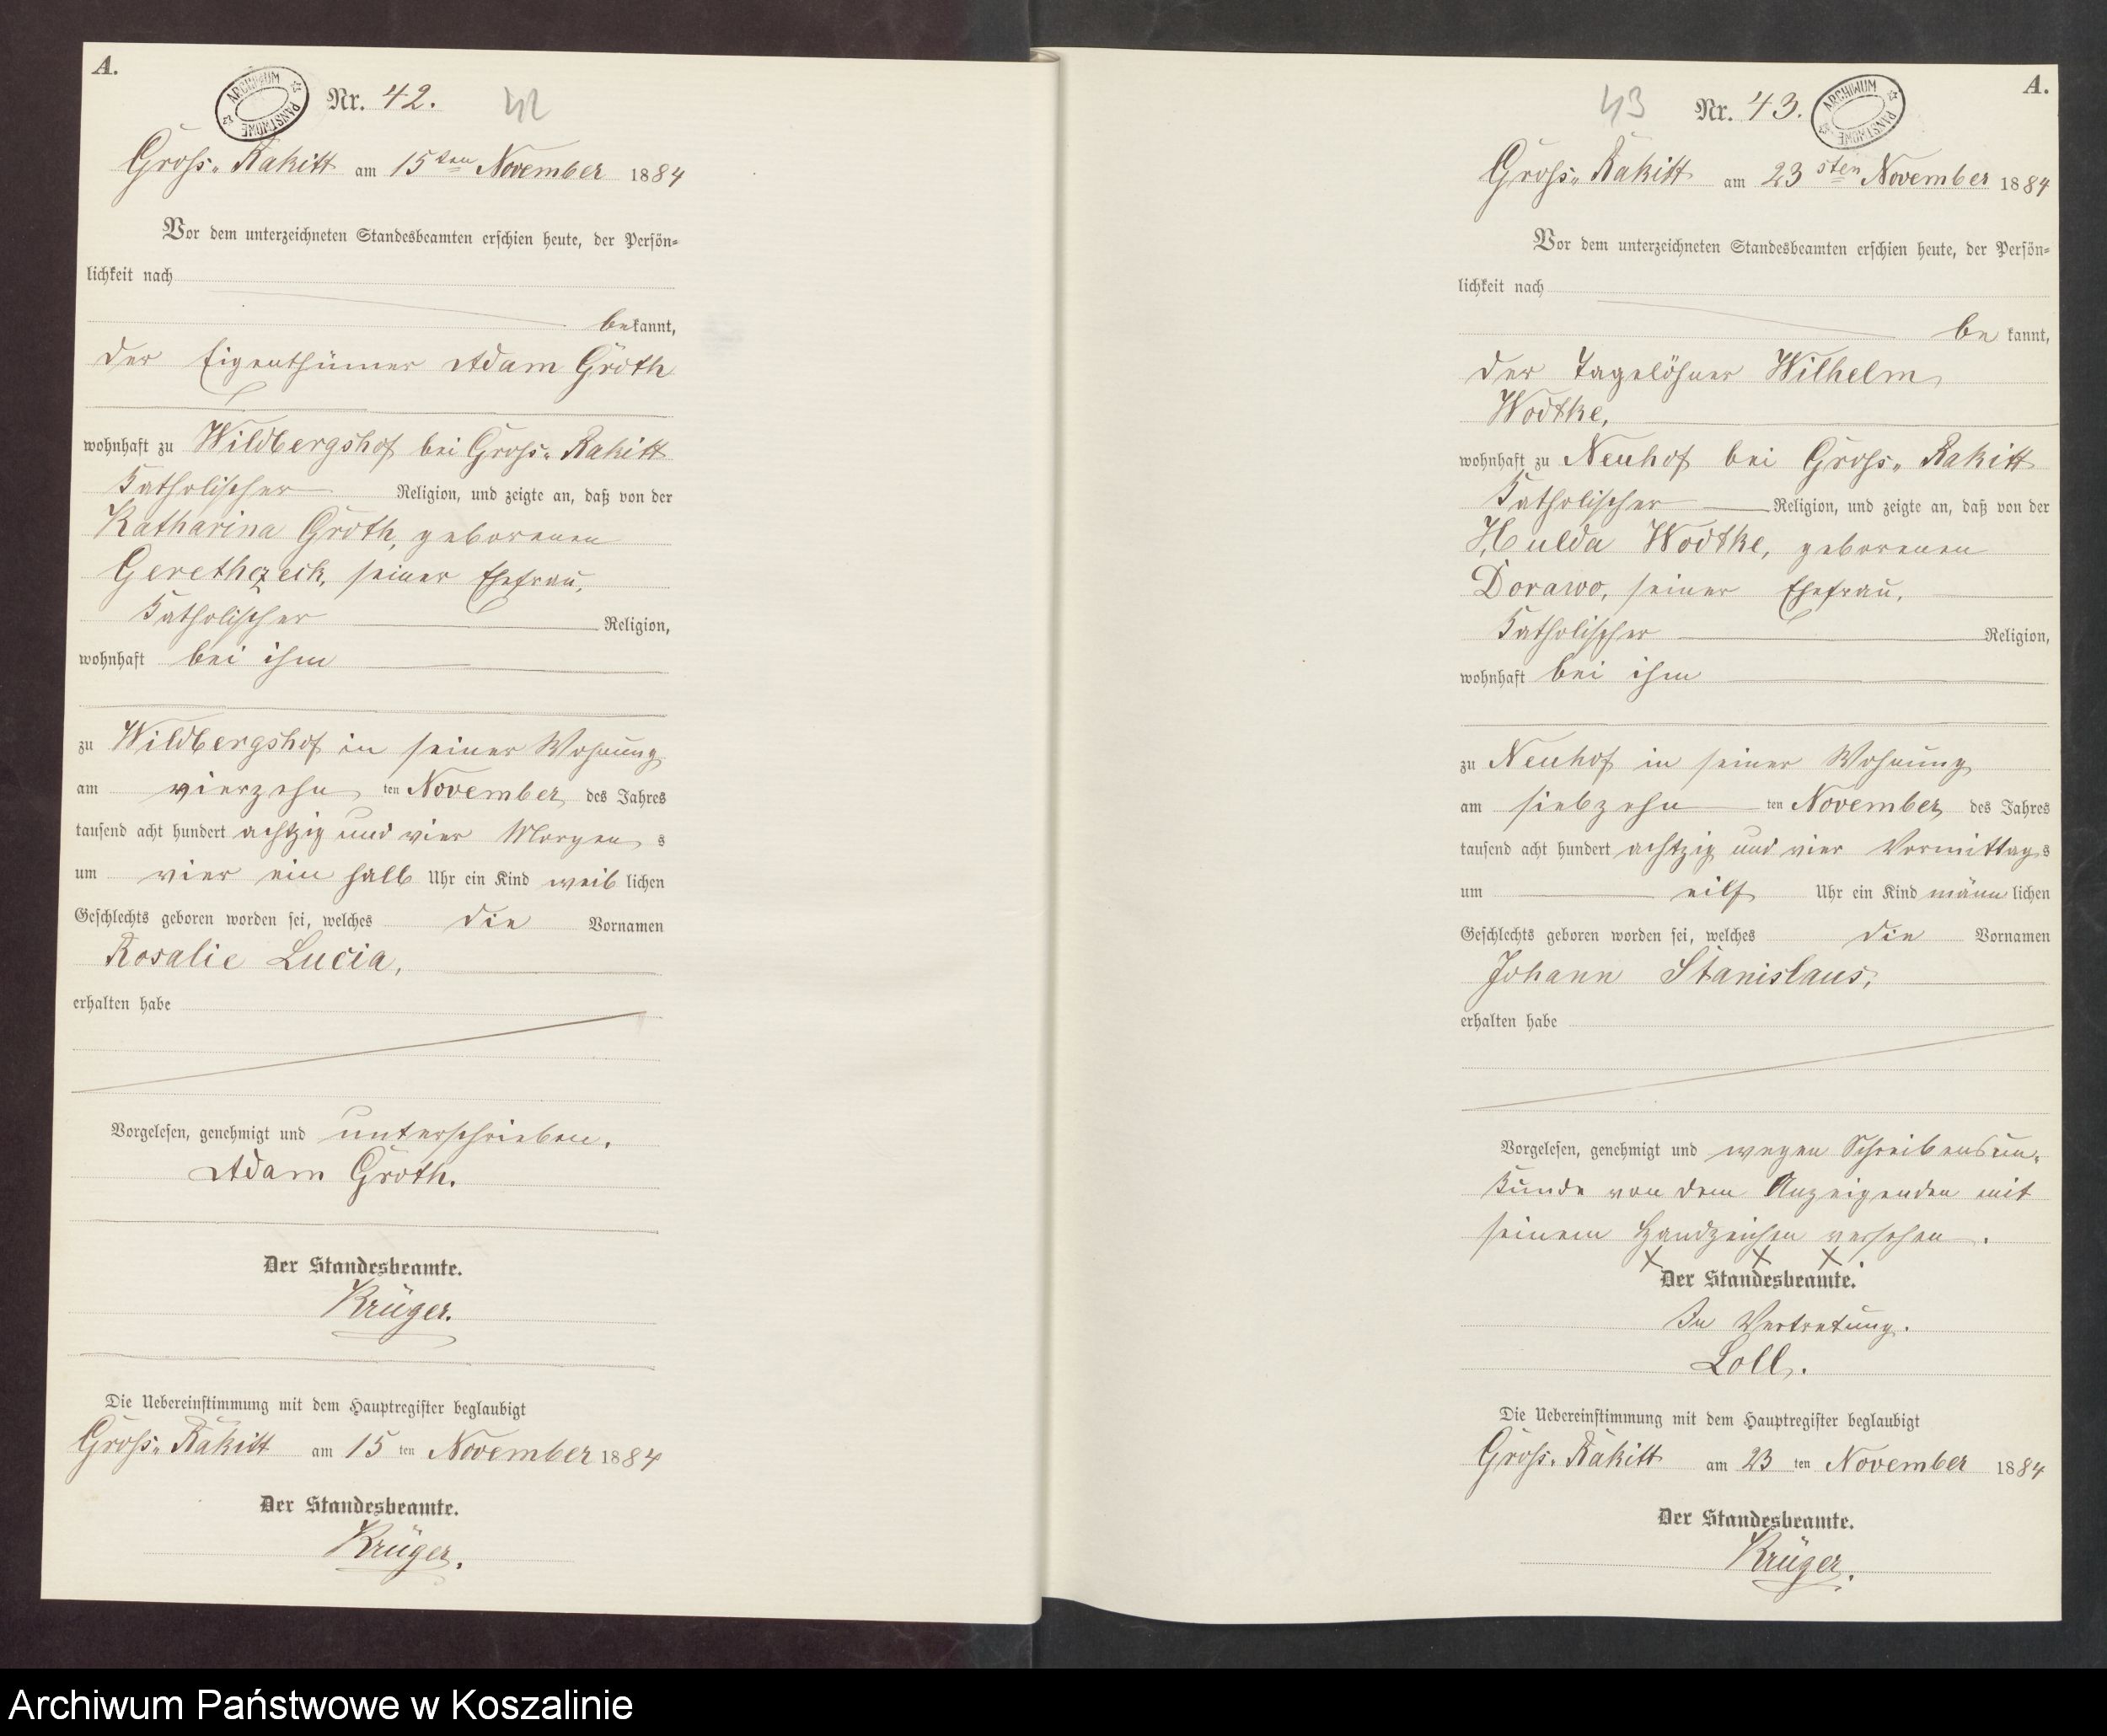 A.
ARCHIWUM PAŃSTWOWE
Nr. 42.
42
Groß-Rakitt am 15ten November 1884
Vor dem unterzeichneten Standesbeamten erschien heute, der Persön-
lichkeit nach
bekannt,
der Eigenthümer Adam Groth
wohnhaft zu Wildbergshof bei Groß-Rakitt
Katholischer Religion, und zeigte an, daß von der
Katharina Groth, geborenen
Gerethczeck, seiner Ehefrau,
Katholischer Religion,
wohnhaft bei ihm
zu Wildbergshof in seiner Wohnung
am vierzehn ten November des Jahres
tausend acht hundert achtzig und vier Morgens
um vier ein halb Uhr ein Kind weiblichen
Geschlechts geboren worden sei, welches die Vornamen
Rosalie Lucia,
erhalten habe
Vorgelesen, genehmigt und unterschrieben.
Adam Groth.
Der Standesbeamte.
Krüger.
Die Uebereinstimmung mit dem Hauptregister beglaubigt
Groß-Rakitt am 15 ten November 1884
Der Standesbeamte.
Krüger.
A.
43
Nr. 43.
ARCHIWUM PAŃSTWOWE
Groß-Rakitt am 23sten November 1884
Vor dem unterzeichneten Standesbeamten erschien heute, der Persön-
lichkeit nach
bekannt,
der Tagelöhner Wilhelm
Wodtke,
wohnhaft zu Neuhof bei Groß-Rakitt
Katholischer Religion, und zeigte an, daß von der
Hulda Wodtke, geborenen
Dorawo, seiner Ehefrau,
Katholischer Religion,
wohnhaft bei ihm
zu Neuhof in seiner Wohnung
am siebzehn ten November des Jahres
tausend acht hundert achtzig und vier Vormittags
um eilf Uhr ein Kind männlichen
Geschlechts geboren worden sei, welches die Vornamen
Johann Stanislaus,
erhalten habe
Vorgelesen, genehmigt und wegen Schreibensun-
kunde von dem Anzeigenden mit
seinem Handzeichen versehen.
X X X
Der Standesbeamte.
In Vertretung.
Loll.
Die Uebereinstimmung mit dem Hauptregister beglaubigt
Groß-Rakitt am 23 ten November 1884
Der Standesbeamte.
Krüger.
Archiwum Państwowe w Koszalinie